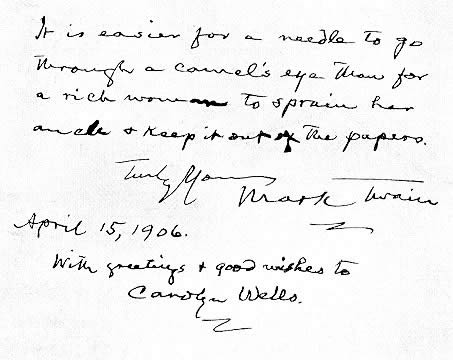 It is easier for a needle to go
through a camel's eye than for
a rich woman to sprain her
ancle & keep it out of the papers.
Truly Yours
Mark Twain
April 15, 1906.
With greetings & good wishes to
Carolyn Wells.